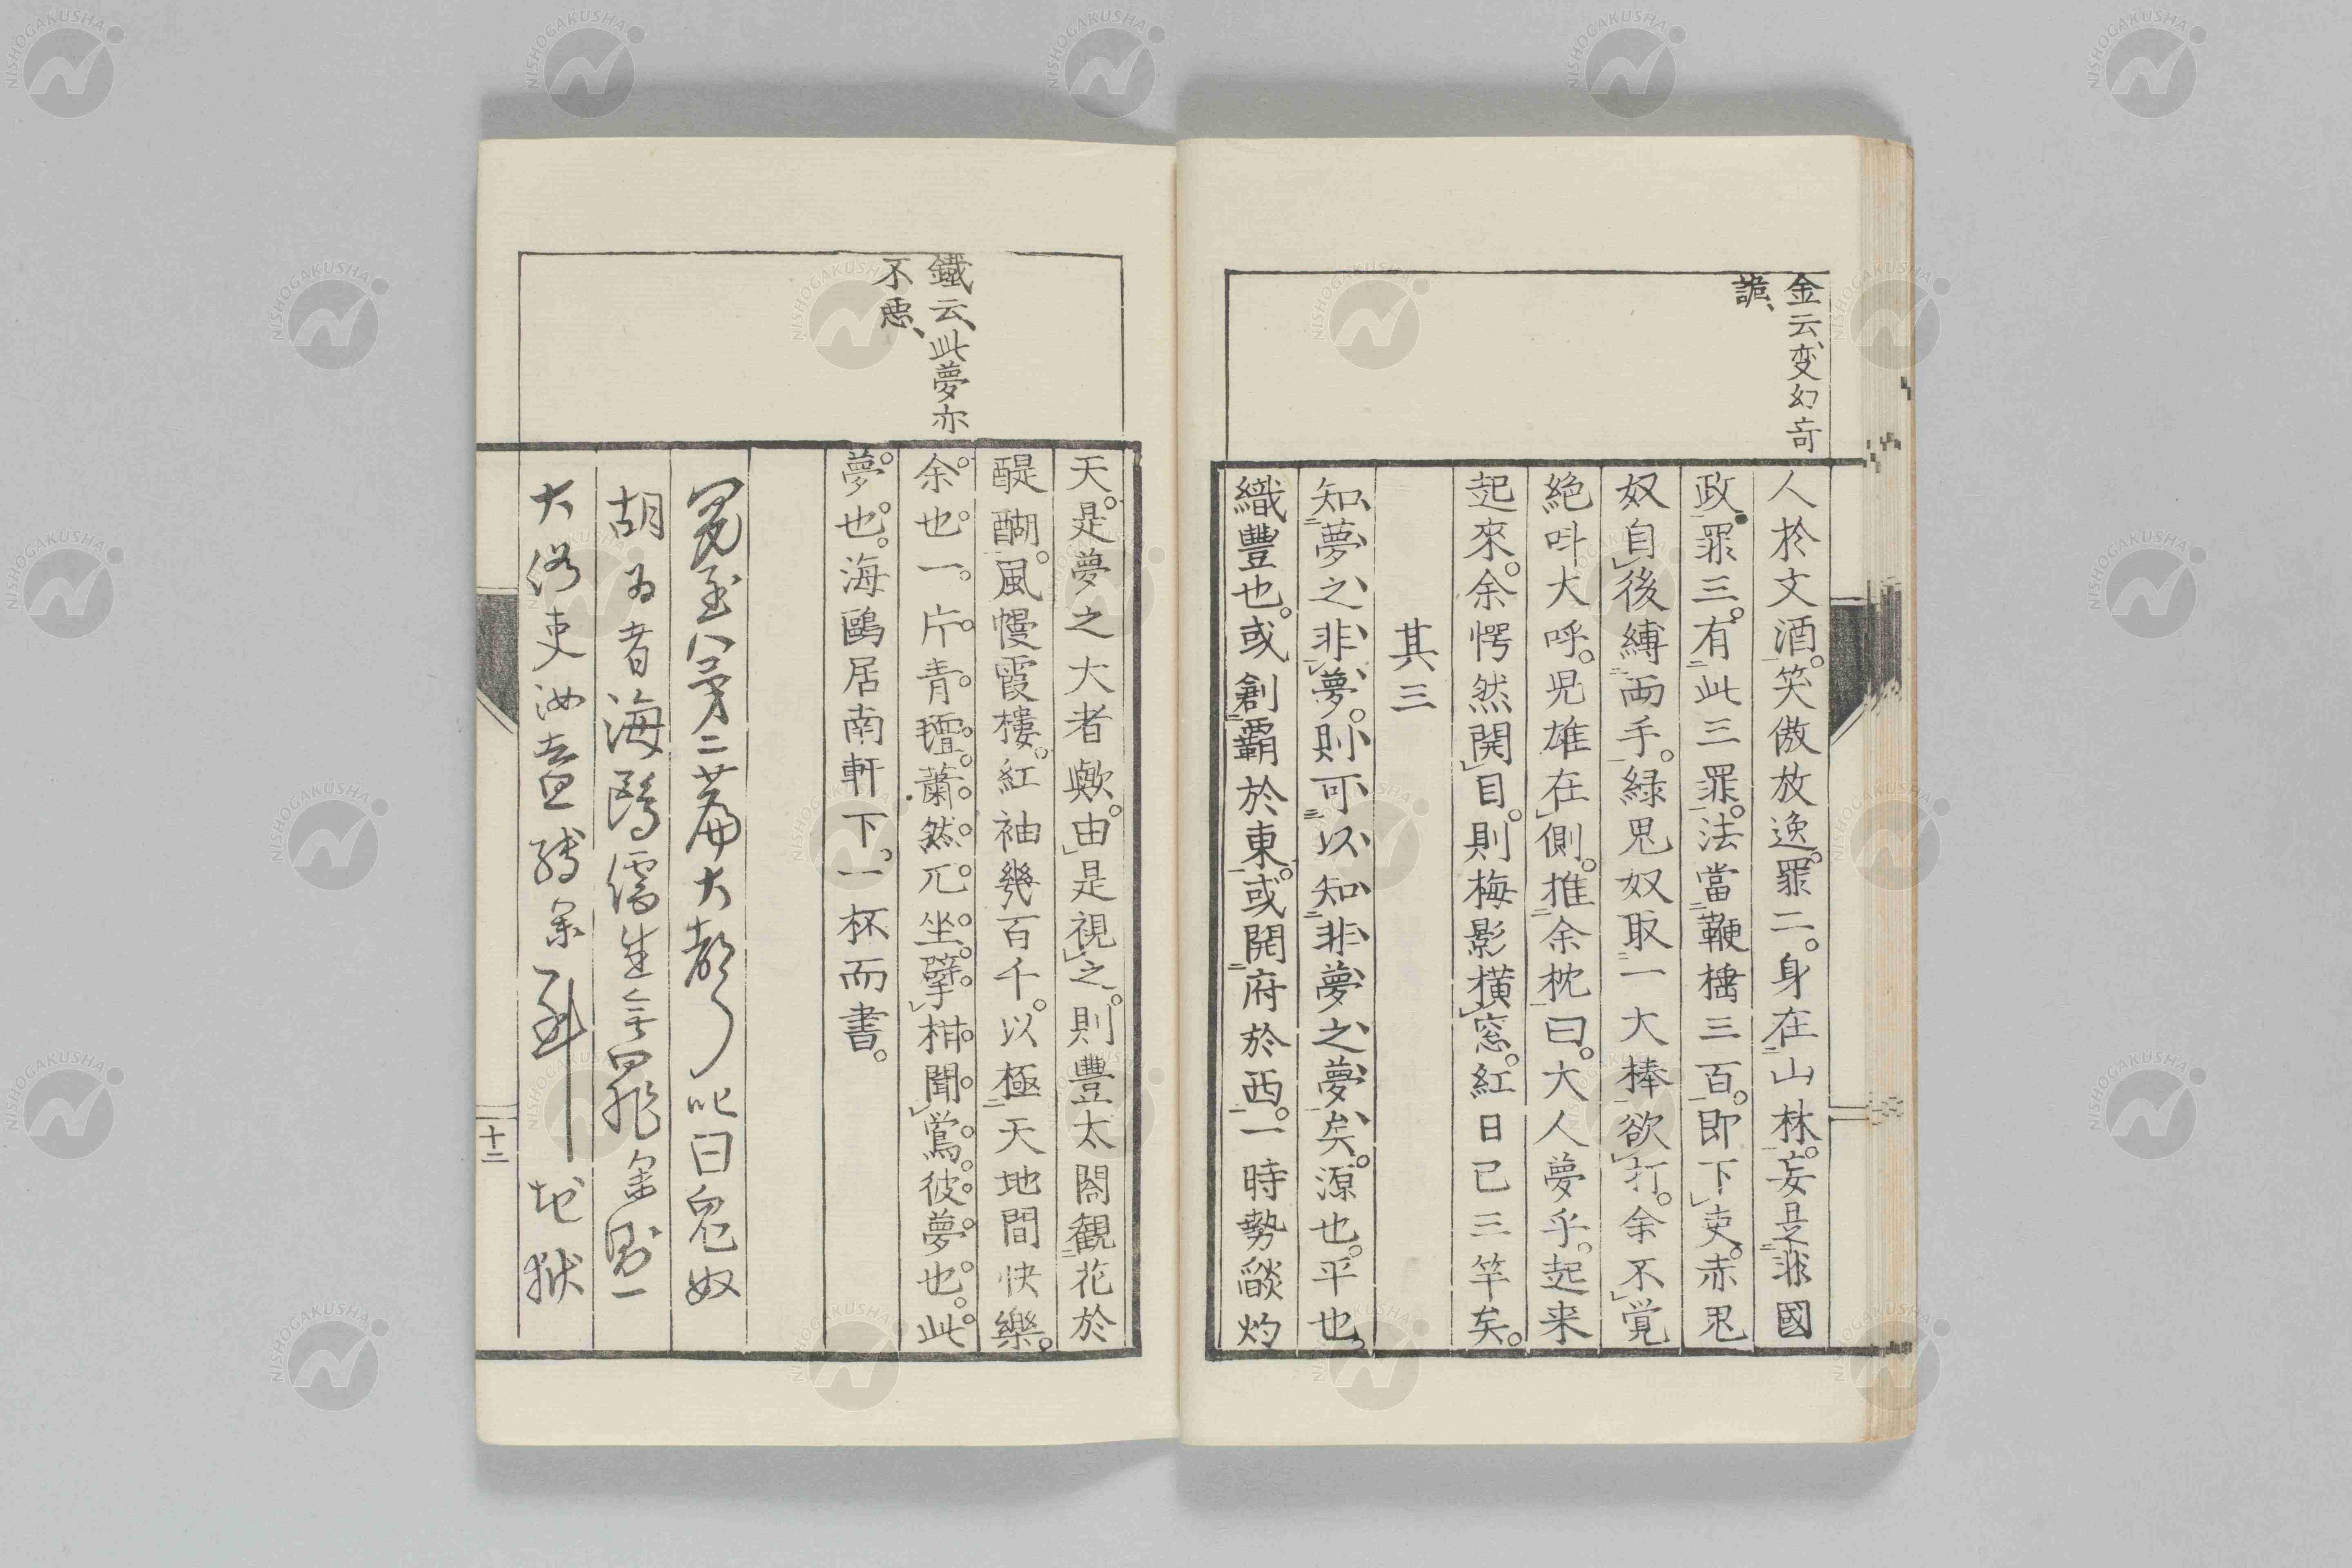 金云、変幻奇
詭、
人於文酒。笑傲放逸。罪二。身在山林。妄是非國
政。罪三。有此三罪。法當鞭橚三百。即下吏。赤鬼
奴自後縛両手。緑鬼奴取一大棒欲打。余不覚
絶叫大呼。児雄在側。推余枕曰。大人夢乎。起来
起來。余愕然開目。則梅影横窓。紅日已三竿矣。
其三
知夢之非夢。則可以知非夢之夢矣。源也。平也。
織豊也。或創覇於東。或開府於西。一時勢燄灼
鐵云、此夢亦
不悪、
天。是夢之大者歟。由是視之。則豊太閤観花於
醍醐。風幔霞楼。紅袖幾百千。以極天地間快樂。
余也。一片青氊。蕭然兀坐。擘柑聞鶯。彼夢也。此
夢也。海鷗居南軒下。一杯而書。
冕至八第二篇大都了叱曰鬼奴
胡為者海鷗儒生無罪
大俗吏汝輩縛地獄
十二
NISHOGAKUSHA